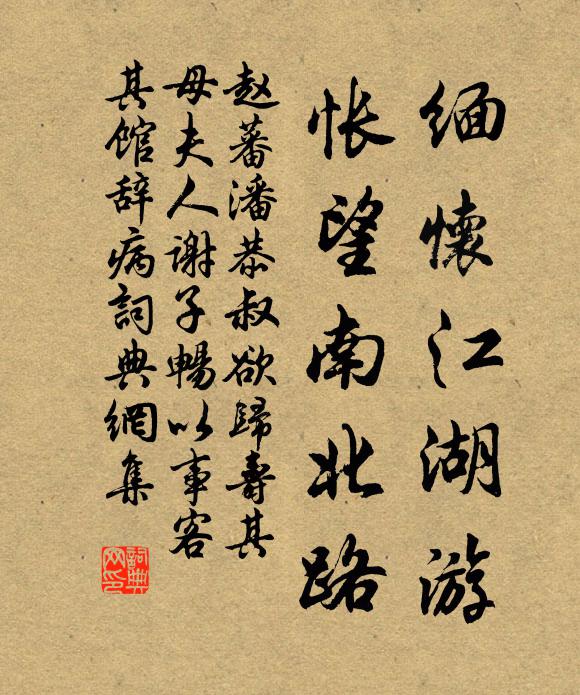 缅懷江湖游
怅望南北路
赵蕃潘恭叔欲歸壽其
母夫人谢子暢以事客
其馆辞病詞典網集
詞典网印